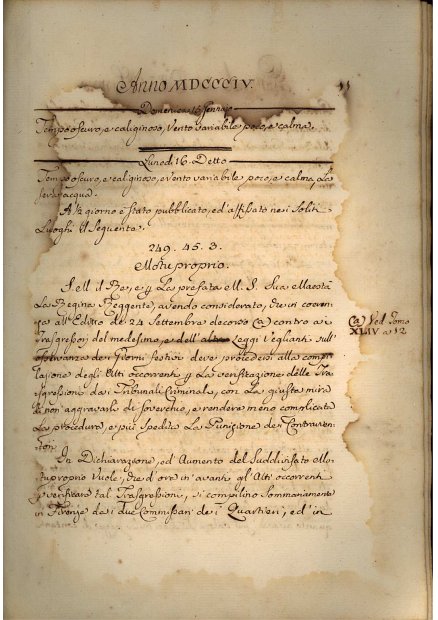 Anno MDCCCIV.
Domenica 15 Gennaro
Tempo oscuro, e caliginoso, Vento variabile poco, e calma.
Lunedì 16. Detto
Tempo oscuro, e caliginoso, e Vento variabile poco, e calma, La
sera acqua.
A 12 giorno è stato pubblicato, ed affissato nei Soliti
Luoghi il Seguente.
249. 45. 3.
Motuproprio.
S. M. il Re, e La prefata M. S. Sua Maestà
La Regina Reggente, avendo considerato, che in coeren
za all' Editto de 24 Settembre decorso (a) contro ai
Trasgressori del medesimo, e dell' altre Leggi veglianti sull'
osservanza dei Giorni festivi deve procedersi alla compi
lazione degli Atti occorrenti La verificazione delle Tra
sgressioni dai Tribunali Criminali, con La giusta mira
di non aggravarli di soverchio, e rendere meno complicata
La procedura, e più spedita La Punizione de Contravven
tori
In Dichiarazione, ed Aumento del Suddivisato Mo
tuproprio Vuole, che d'ora in avanti gl' Atti occorrenti
verificare tali Trasgressioni, si compilino Sommariamente
in Firenze dai due Commissari de Quartieri, ed in
(a) Ved. Tomo
XLIV a 12